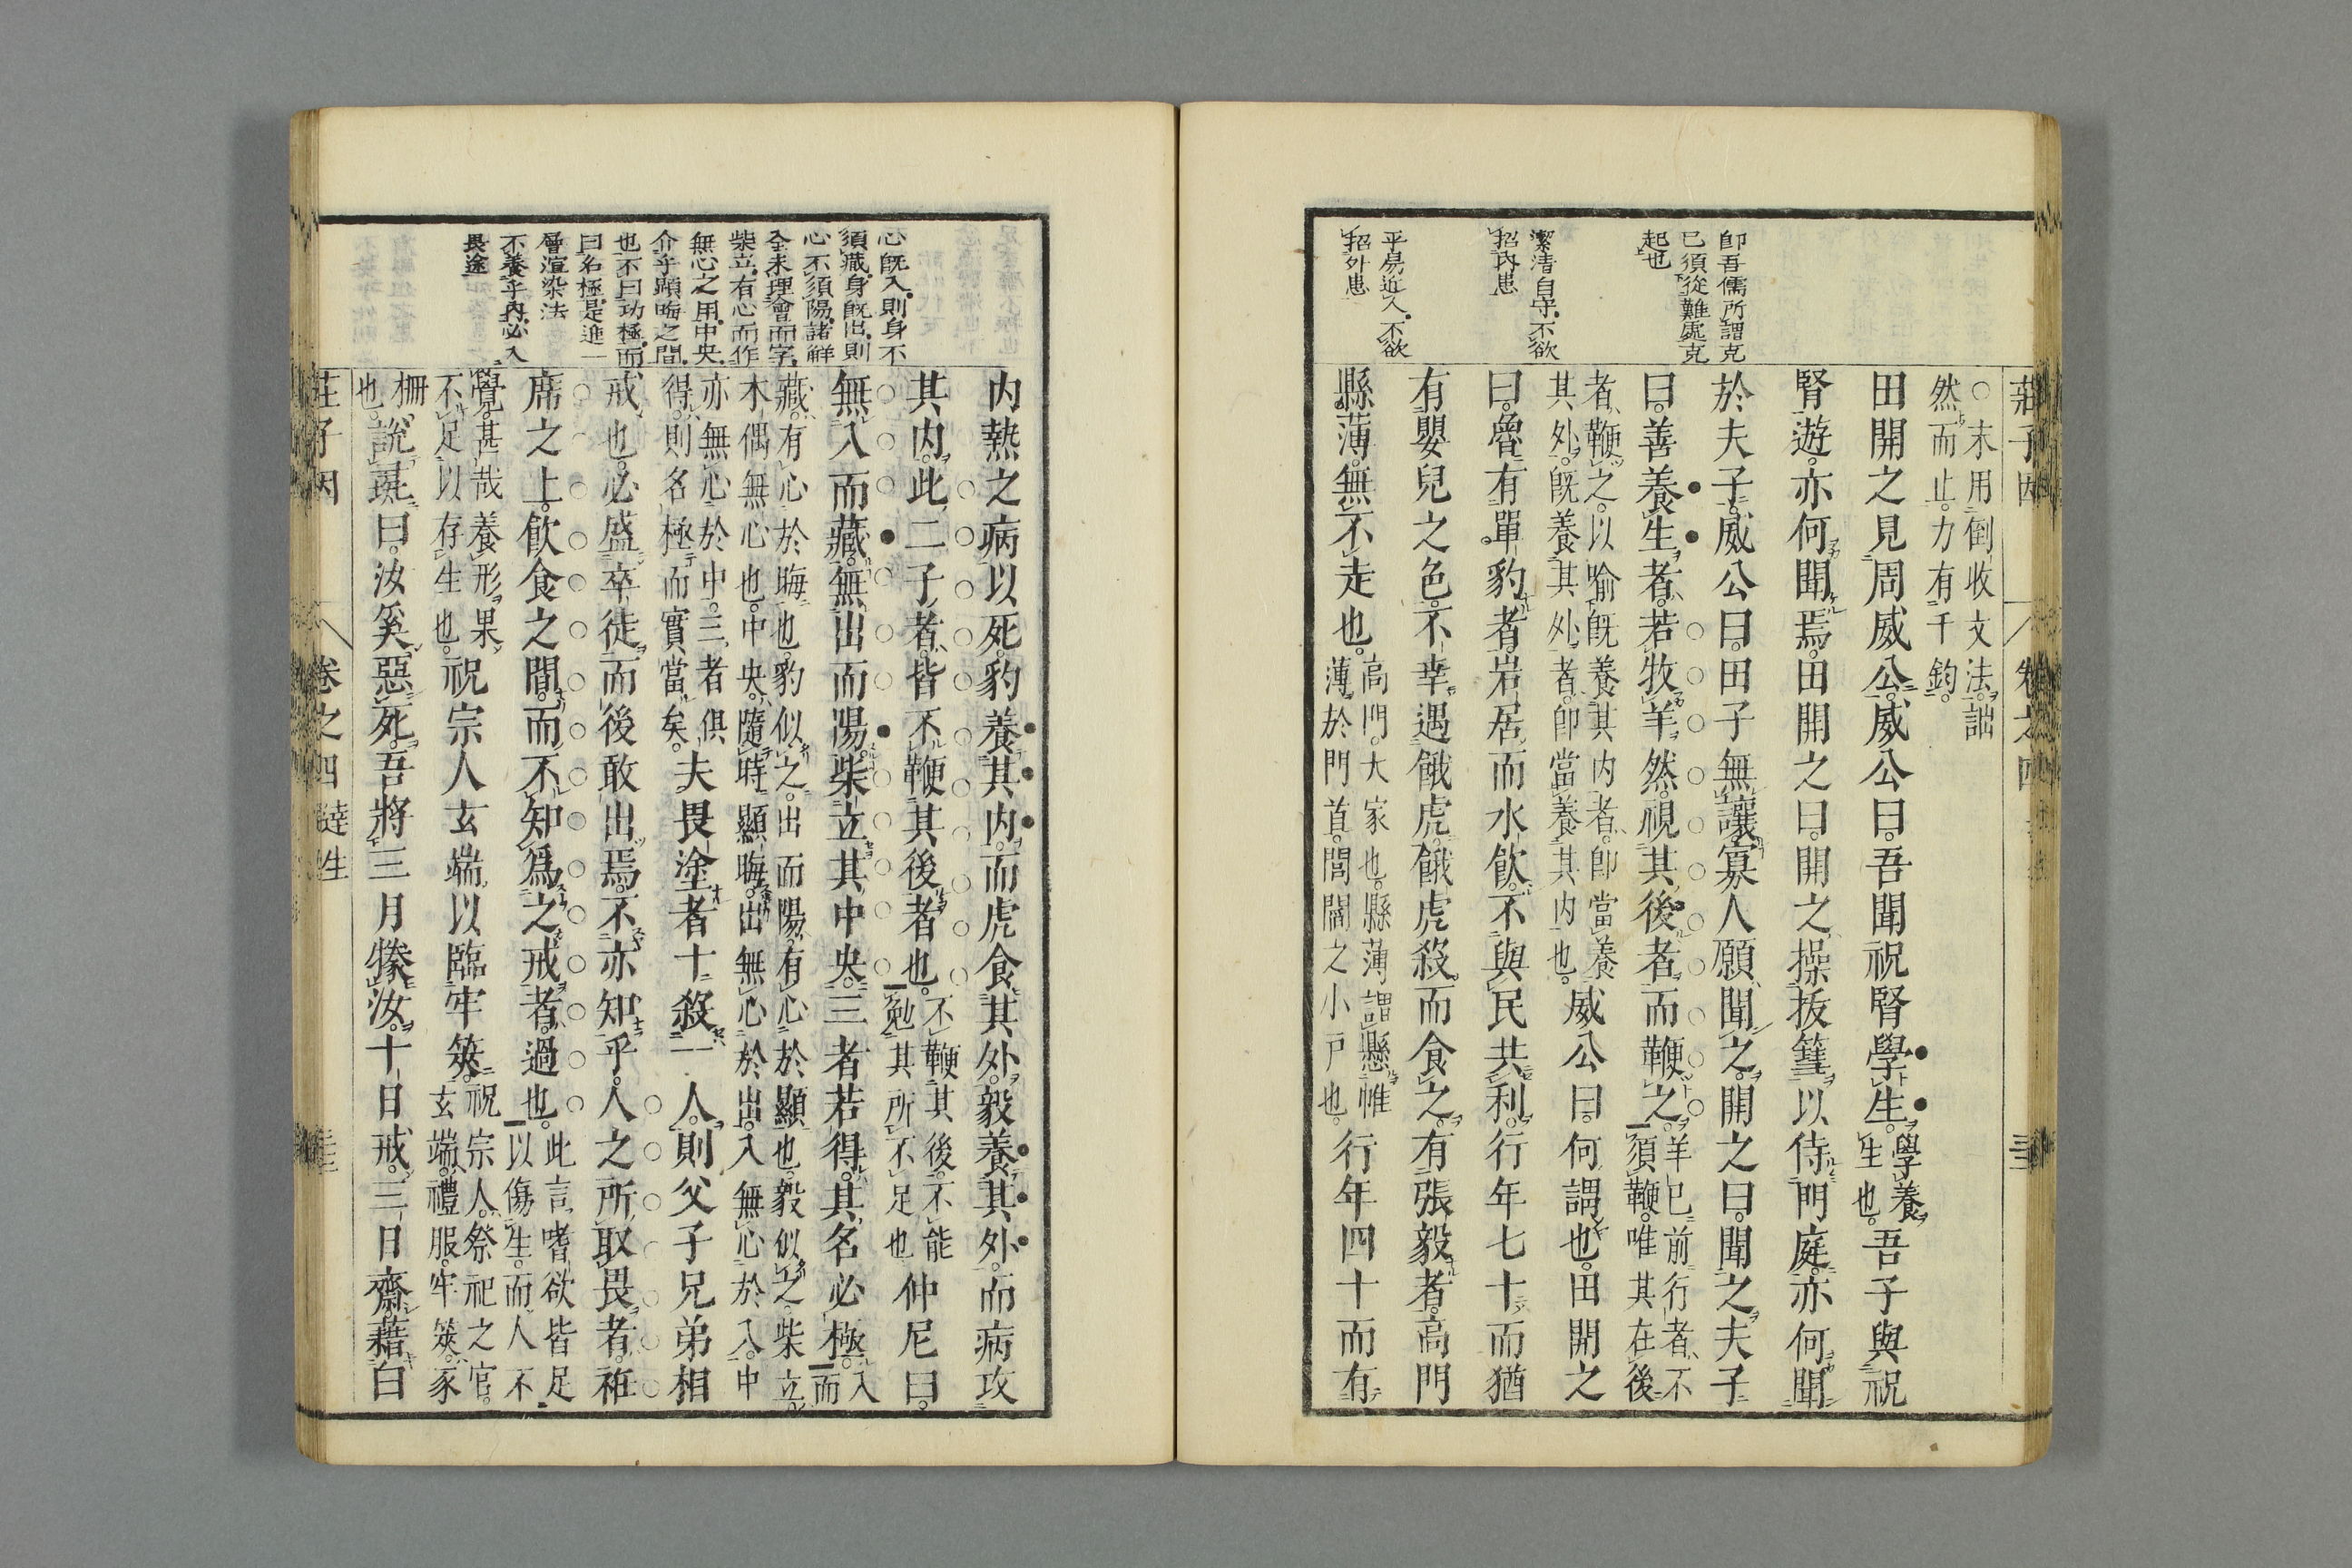 莊子因　卷之四
○末用倒收文法。詘
然而止。力有千鈞。
田開之見周威公。威公曰。吾聞祝腎學生。學養生也。吾子與祝
腎遊。亦何聞焉。田開之曰。開之操拔篲。以侍門庭。亦何聞
於夫子。威公曰。田子無讓。寡人願聞之。開之曰。聞之夫子
曰。善養生者。若牧羊然。視其後者而鞭之。羊已前行者、不須鞭。唯其在後
者、鞭之。以喻既養其内者、即當養其外。既養其外者、即當養其内也。威公曰。何謂也。田開之
曰。魯有單豹者。岩居而水飮。不與民共利。行年七十而猶
有嬰兒之色。不幸遇餓虎。餓虎殺而食之。有張毅者。高門
縣薄。無不走也。高門。大家也。縣薄謂懸帷薄於門首。閭閻之小戸也。行年四十而有
即吾儒所謂克
已須從難處克
起也
潔清自守。不欲
招内患
平易近人。不欲
招外患
内熱之病以死。豹養其内。而虎食其外。毅養其外。而病攻
其内。此二子者。皆不鞭其後者也。不鞭其後。不能勉其所不足也仲尼曰。
無入而藏。無出而陽。柴立其中央。三者若得。其名必極。入而
藏。有心於晦也。豹似之。出而陽。有心於顯也。毅似之。柴立。木偶無心也。中央、隨時顯晦。出無心於出。入無心於入。中
亦無心於中。三者俱得。則名極而實當矣。夫畏塗者。十殺一人。則父子兄弟相
戒也。必盛卒徒。而後敢出焉。不亦知乎。人之所取畏者。袵
席之上。飮食之間。而不知爲之戒者。過也。此言嗜欲皆足以傷生。而人不
覺。甚哉養形果不足以存生也。祝宗人玄端以臨牢筴。祝宗人、祭祀之官。玄端、禮服。牢筴、豕
柵也。說彘曰。汝奚惡死。吾將三月㹖汝。十日戒。三日齋。藉白
心既入。則身不
須藏。身既出。則
心不須陽。諸解
全未理會而字。
柴立。有心而作
無心之用。中央。
介乎顯晦之間。
也不曰功極。而
曰名極。是進一
層渲染法
不養乎内。必入
畏途
莊子因　卷之四　達生